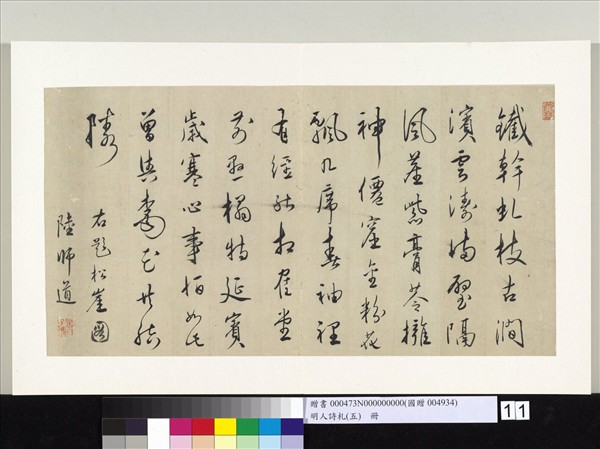 鐵幹虬枝古澗
濱雲濤壁隔
風塵紫膏苓擁
神僊窟金粉花
飄几席春袖裡
有經相堂
前懸榻特延賓
歲寒心事
曾與共結
鄰
右題松崖圖
陸師道
贈書 000473N000000000(國贈 004934)
明人詩札(五) 冊
11